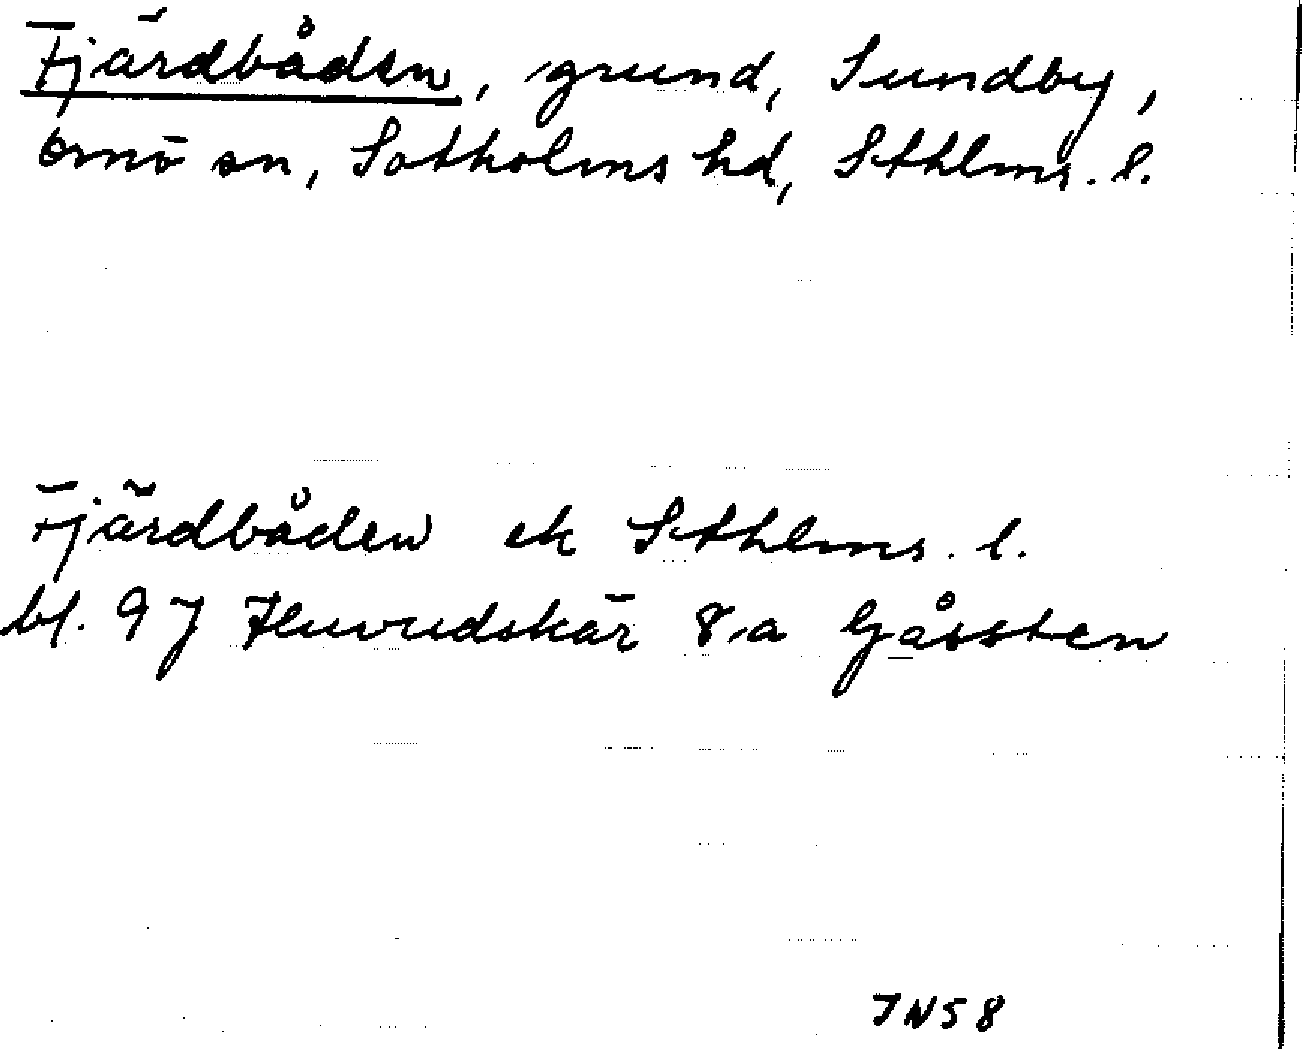 Fjärdbåden, grund, Sundby,
Ornö sn, Sotholms hd, Sthlms. l.
Fjärdbåden ek Sthlms. l.
bl. 97 Huvudskär 8,a Gåssten
JN58